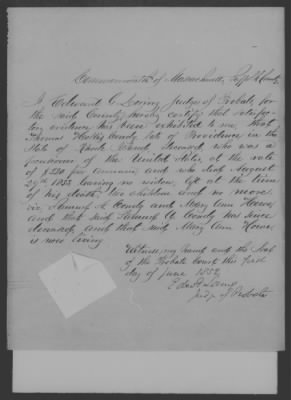 Commonwealth of Massachusetts,
I, Edward G. Loring Judge of Probate, for
the said County, hereby certify that satisfac-
tory evidence has been exhibited to me, that
Thomas County late of Providence in the
State of Rhode Island Deceased, who was a
pensioner of the United States, at the rate
of per annum, and who died August
29th leaving no widow, left at the time
of his death, two children and no more
viz Samuel A. Condy and Mary Ann Howe,
and that said Samuel A. Condy has since
deceased, and that said Mary Ann Howe
is now living
Witness my hand and the Seal
of the Probate Court this first
day of June 1852
Edw. G. Loring
Judge of Probate